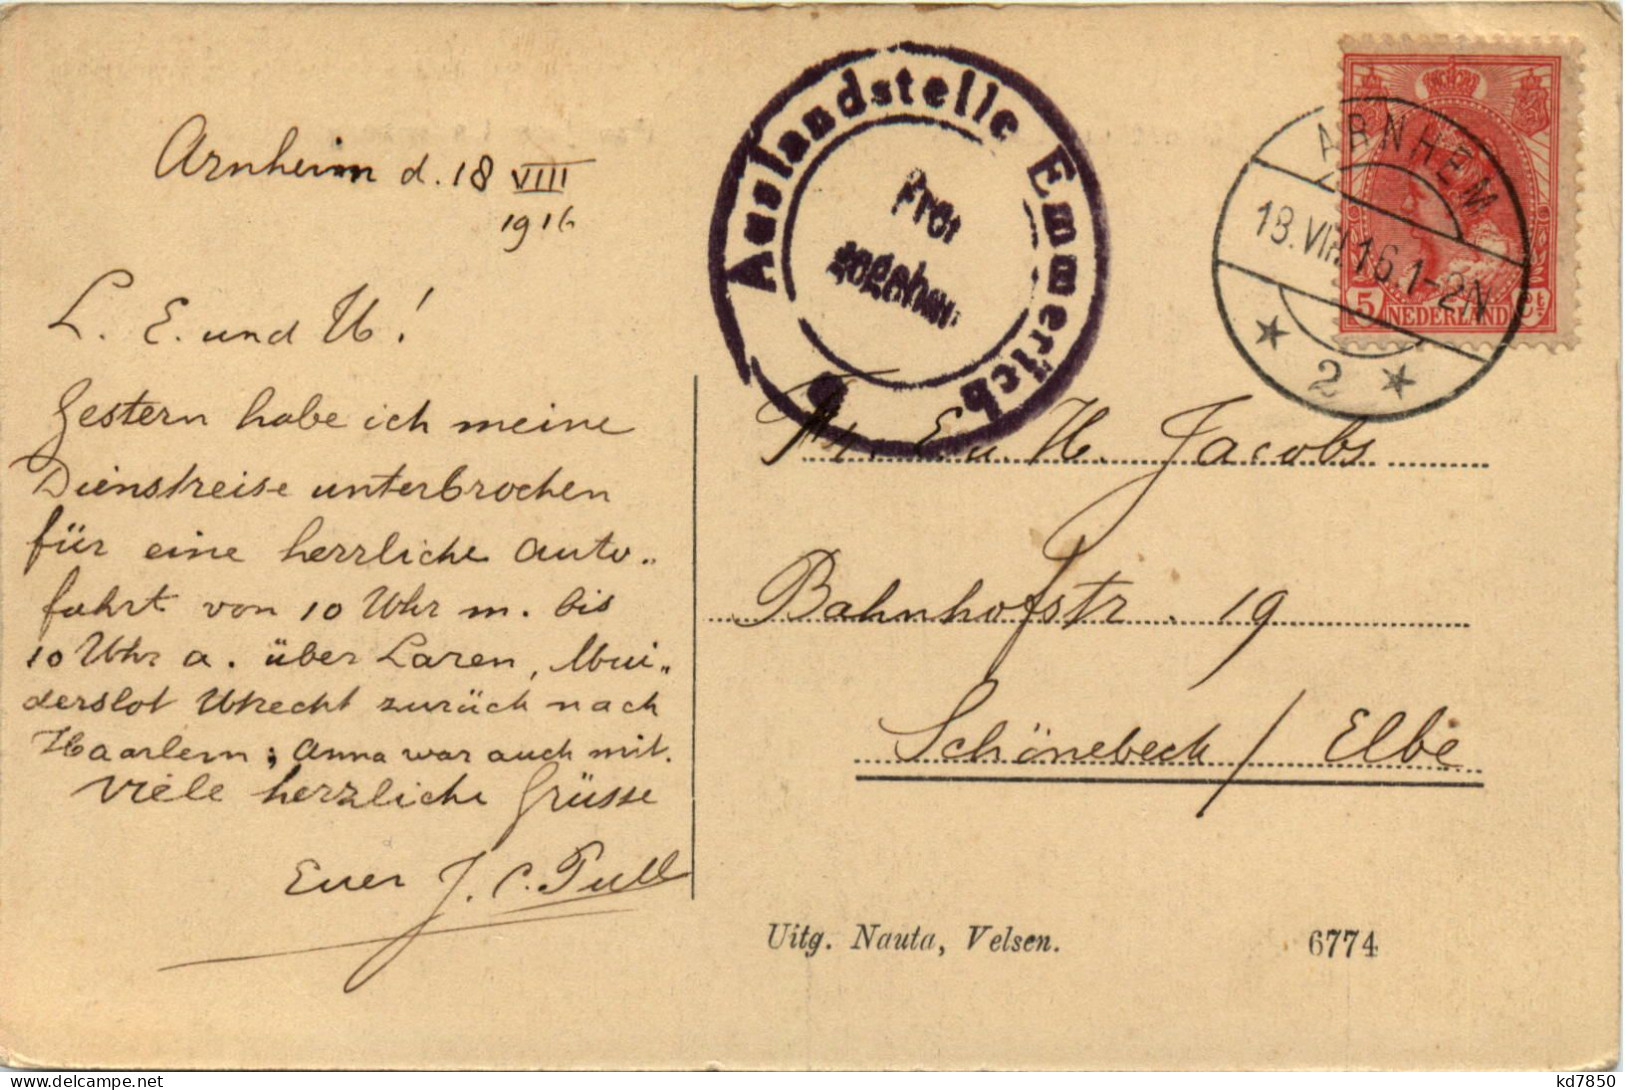 Arnheim d. 18 VIII
1916
L. E. und H!
Gestern habe ich meine
Dienstreise unterbrochen
für eine herrliche Auto„
fahrt von 10 Uhr m. bis
10 Uhr a. über Laren, Mui„
derslot Utrecht zurück nach
Haarlem; Anna war auch mit.
Viele herzliche Grüsse
Euer J. C. Pull
Auslandstelle Emmerich
Frei
gegeben
ARNHEM
18.VIII.16.1-2N
2
5 NEDERLAND Ct
E. u. H. Jacobs
Bahnhofstr. 19
Schönebeck / Elbe
Uitg. Nauta, Velsen.
6774
kd7850